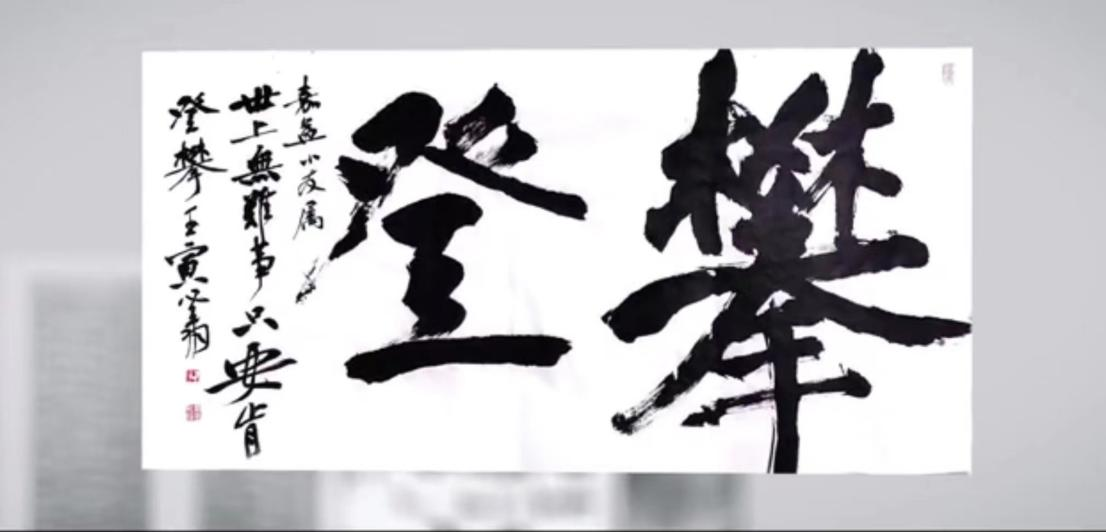 攀登
嘉小友属
世上無難事只要肯
登攀壬寅